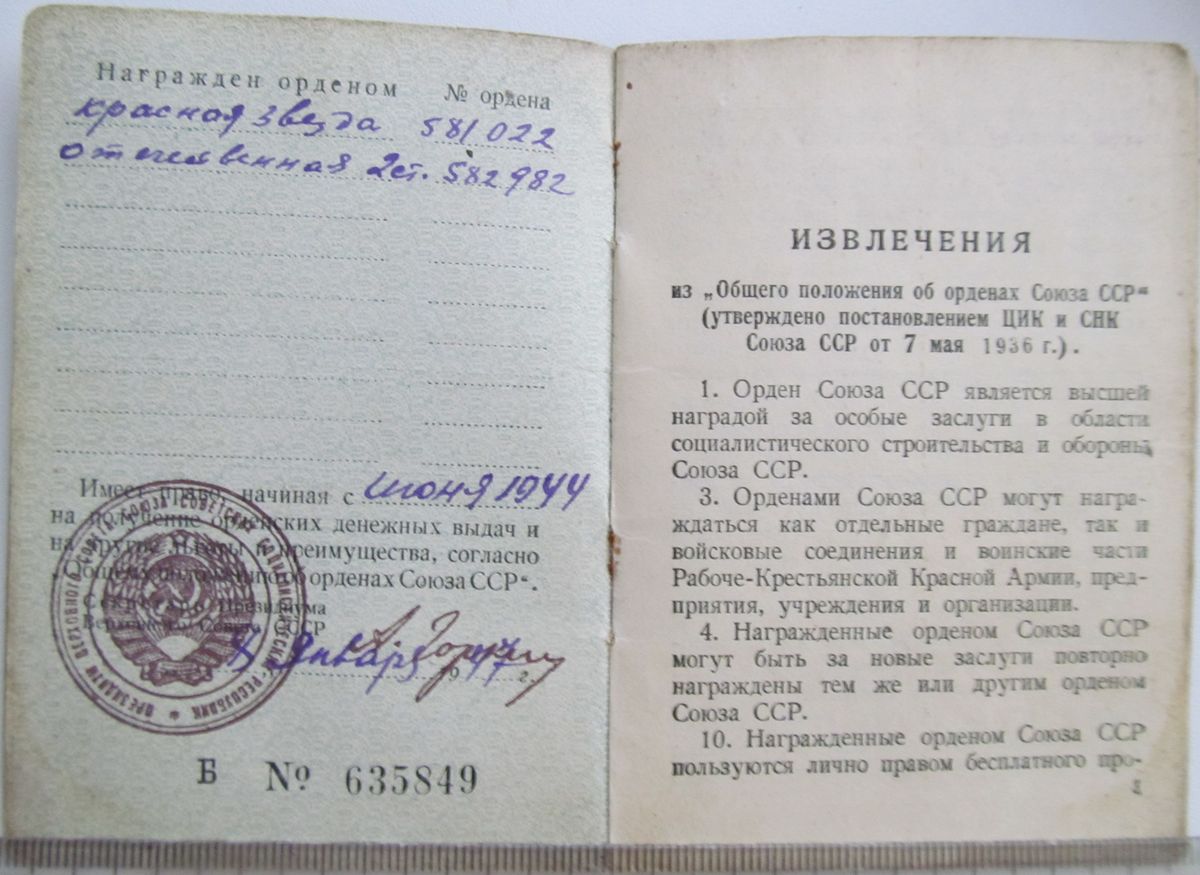 Награжден орденом № ордена
красная звезда 581022
отечественная 2ст. 582982
Имеет право, начиная с июня 1944
на получение орденских денежных выдач и
на другие льготы и преимущества, согласно
„Общему положению об орденах Союза ССР“.
Секретарь Президиума
Верховного Совета СССР
Января 1947 г.
ПРЕЗИДИУМ ВЕРХОВНОГО СОВЕТА СОЮЗА СОВЕТСКИХ СОЦИАЛИСТИЧЕСКИХ РЕСПУБЛИК
Б № 635849
ИЗВЛЕЧЕНИЯ
из „Общего положения об орденах Союза ССР“
(утверждено постановлением ЦИК и СНК
Союза ССР от 7 мая 1936 г.).
1. Орден Союза ССР является высшей
наградой за особые заслуги в области
социалистического строительства и обороны
Союза ССР.
3. Орденами Союза ССР могут награ-
ждаться как отдельные граждане, так и
войсковые соединения и воинские части
Рабоче-Крестьянской Красной Армии, пред-
приятия, учреждения и организации.
4. Награжденные орденом Союза ССР
могут быть за новые заслуги повторно
награждены тем же или другим орденом
Союза ССР.
10. Награжденные орденом Союза ССР
пользуются лично правом бесплатного про-